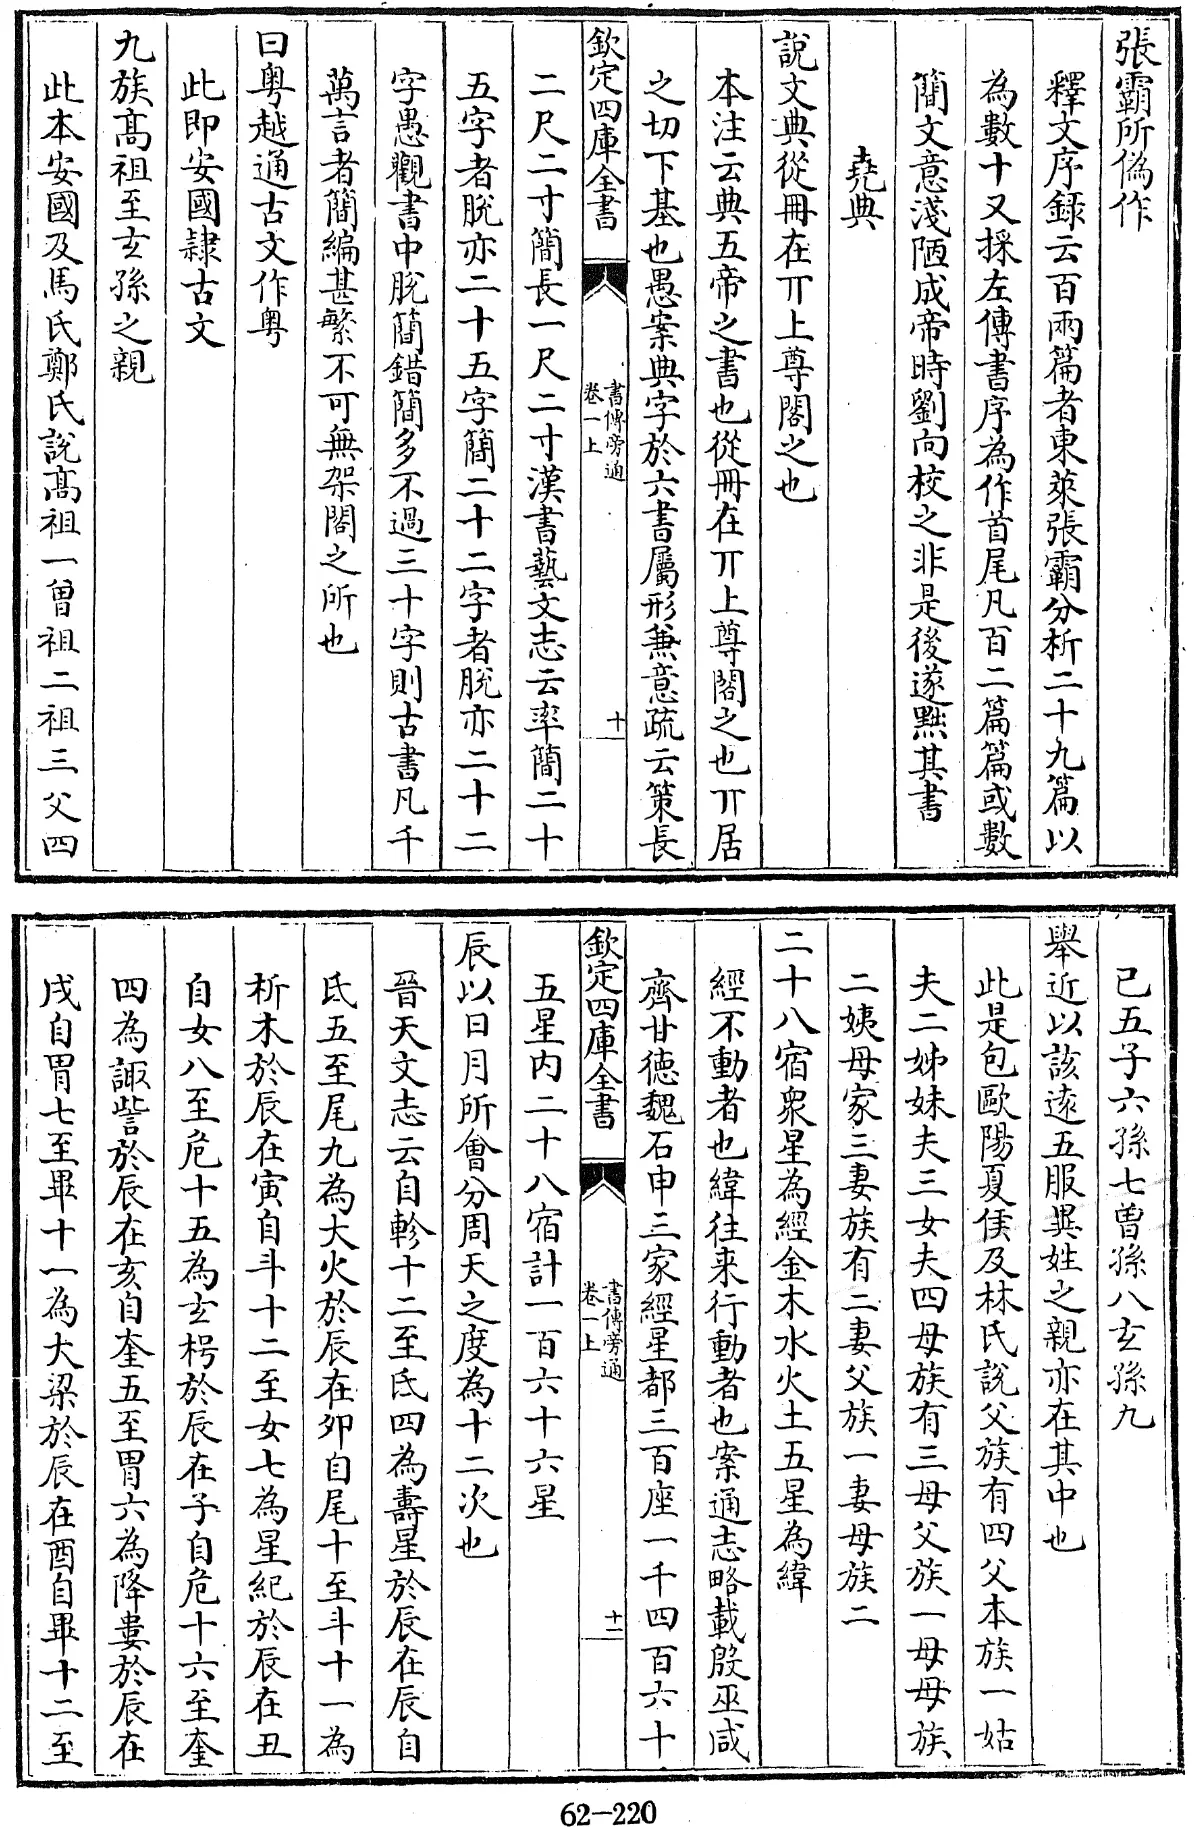 張霸所偽作
釋文序録云百兩篇者東萊張霸分析二十九篇以
為數十又採左傳書序為作首尾凡百二篇篇或數
簡文意淺陋成帝時劉向校之非是後遂黜其書
堯典
說文典從冊在丌上尊閣之也
本注云典五帝之書也從冊在丌上尊閣之也丌居
之切下基也愚案典字於六書屬形兼意疏云策長
欽定四庫全書
書傳旁通
卷一上
十
二尺二寸簡長一尺二寸漢書藝文志云率簡二十
五字者脫亦二十五字簡二十二字者脫亦二十二
字愚觀書中脫簡錯簡多不過三十字則古書凡千
萬言者簡編甚繁不可無架閣之所也
曰粤越通古文作粤
此即安國隸古文
九族髙祖至玄孫之親
此本安國及馬氏鄭氏說髙祖一曽祖二祖三父四
已五子六孫七曽孫八玄孫九
舉近以該逺五服異姓之親亦在其中也
此是包歐陽夏侯及林氏說父族有四父本族一姑
夫二姊妹夫三女夫四母族有三母父族一母母族
二姨母家三妻族有二妻父族一妻母族二
二十八宿衆星為經金木水火土五星為緯
經不動者也緯往来行動者也案通志略載殷巫咸
齊甘德魏石申三家經星都三百座一千四百六十
欽定四庫全書
書傳旁通
卷一上
十一
五星内二十八宿計一百六十六星
辰以日月所會分周天之度為十二次也
晉天文志云自軫十二至氐四為壽星於辰在辰自
氐五至尾九為大火於辰在夘自尾十至斗十一為
析木於辰在寅自斗十二至女七為星紀於辰在丑
自女八至危十五為玄枵於辰在子自危十六至奎
四為諏訾於辰在亥自奎五至胃六為降婁於辰在
戌自胃七至畢十一為大梁於辰在酉自畢十二至
62-220